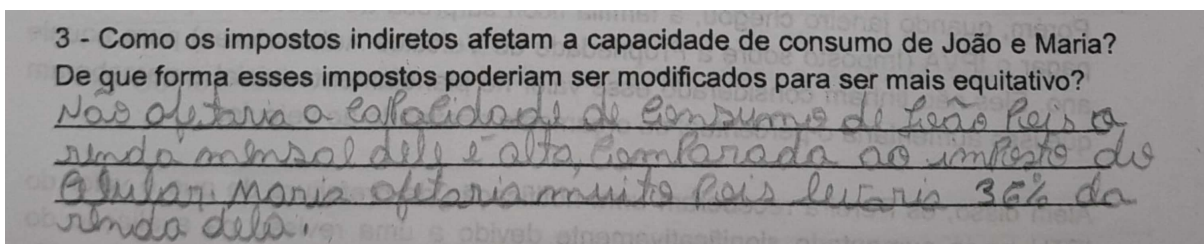 3 - Como os impostos indiretos afetam a capacidade de consumo de João e Maria?
De que forma esses impostos poderiam ser modificados para ser mais equitativo?
Não afetaria a capacidade de consumo de João pois a
renda mensal dele é alta, comparada ao imposto do
celular. Maria afetaria muito pois levaria 36% da
renda dela.